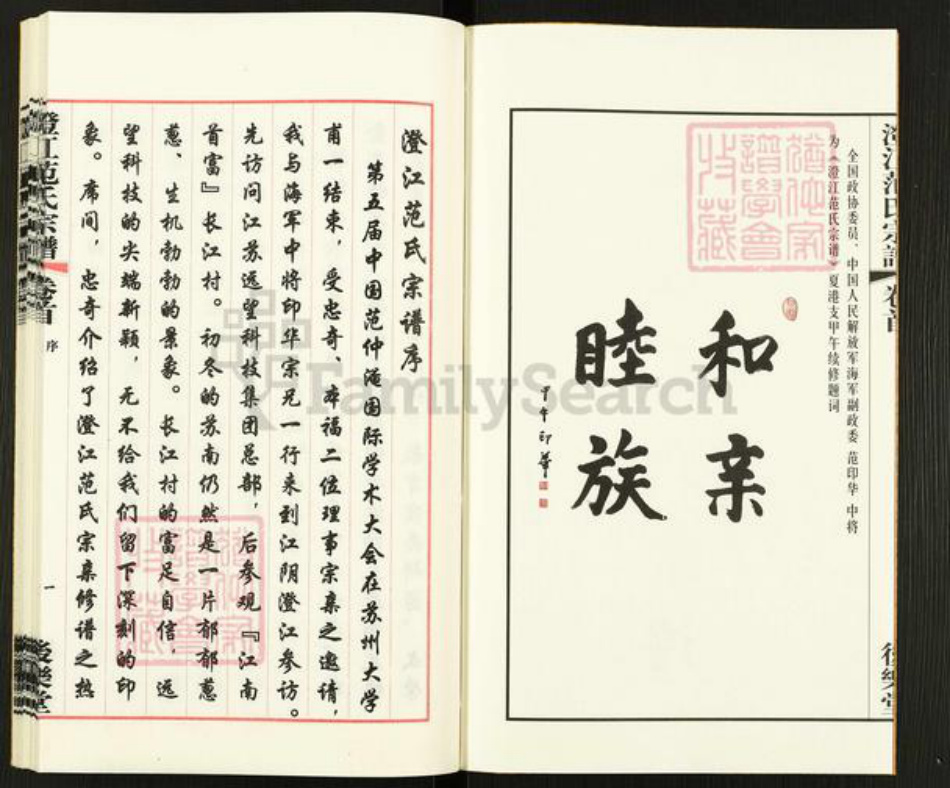 全国政协委员、中国人民解放军海军副政委 范印华 中将
为《澄江范氏宗谱》夏港支甲午续修题词
和亲
睦族
甲午印华
澄江范氏宗谱 卷首
後樂堂
澄江范氏宗谱序
第五届中国范仲淹国际学术大会在苏州大学
甫一结束，受忠奇、本福二位理事宗亲之邀请，
我与海军中将印华宗兄一行来到江阴澄江参访。
先访问江苏远望科技集团总部，后参观『江南
首富』长江村。初冬的苏南仍然是一片郁郁葱
葱、生机勃勃的景象。长江村的富足自信，远
望科技的尖端新颖，无不给我们留下深刻的印
象。席间，忠奇介绍了澄江范氏宗亲修谱之热
澄江范氏宗譜 卷首
序
一
後樂堂
FamilySearch